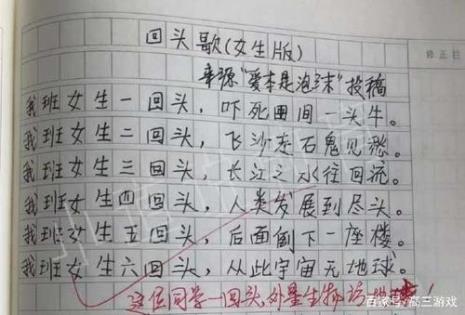 回头歌(女生版)
来源"爱本是泡沫"投稿
修正栏
我班女生一回头,吓死田间一头牛。
我班女生二回头,飞沙走石鬼见愁。
我班女生三回头,长江之水往回流。
我班女生四回头,人类发展到尽头。
我班女生五回头,后面倒下一座楼。
我班女生六回头,从此宇宙无地球。
这位同学一回头,外星生物诱地球!
百家号/高三游戏